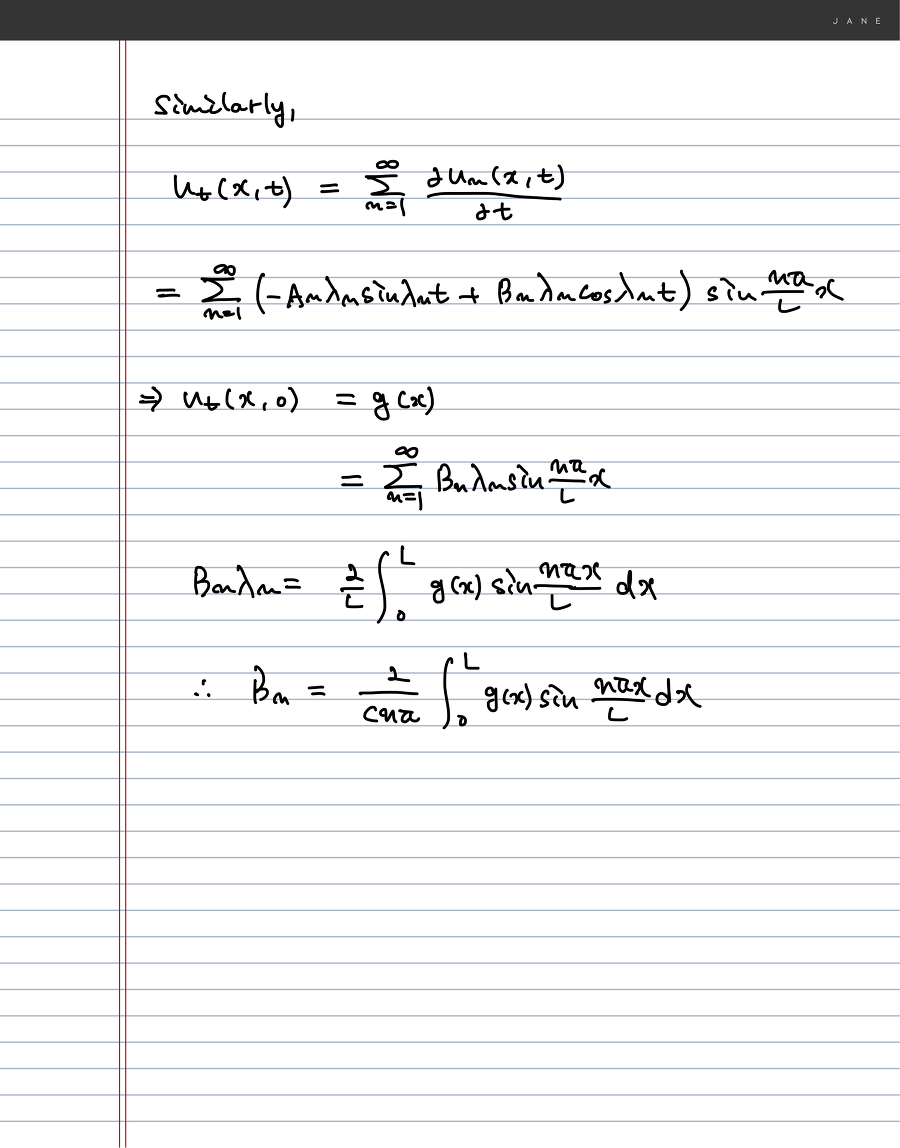 JANE
Similarly,
u_t(x,t) = \sum_{n=1}^{\infty} \frac{\partial u_n(x,t)}{\partial t}
= \sum_{n=1}^{\infty} (-A_n λ_n sin λ_n t + B_n λ_n cos λ_n t) sin \frac{nπ}{L} x
⇒ u_t(x,0) = g(x)
= \sum_{n=1}^{\infty} B_n λ_n sin \frac{nπ}{L} x
B_n λ_n = \frac{2}{L} \int_0^L g(x) sin \frac{nπx}{L} dx
∴ B_n = \frac{2}{cnπ} \int_0^L g(x) sin \frac{nπx}{L} dx